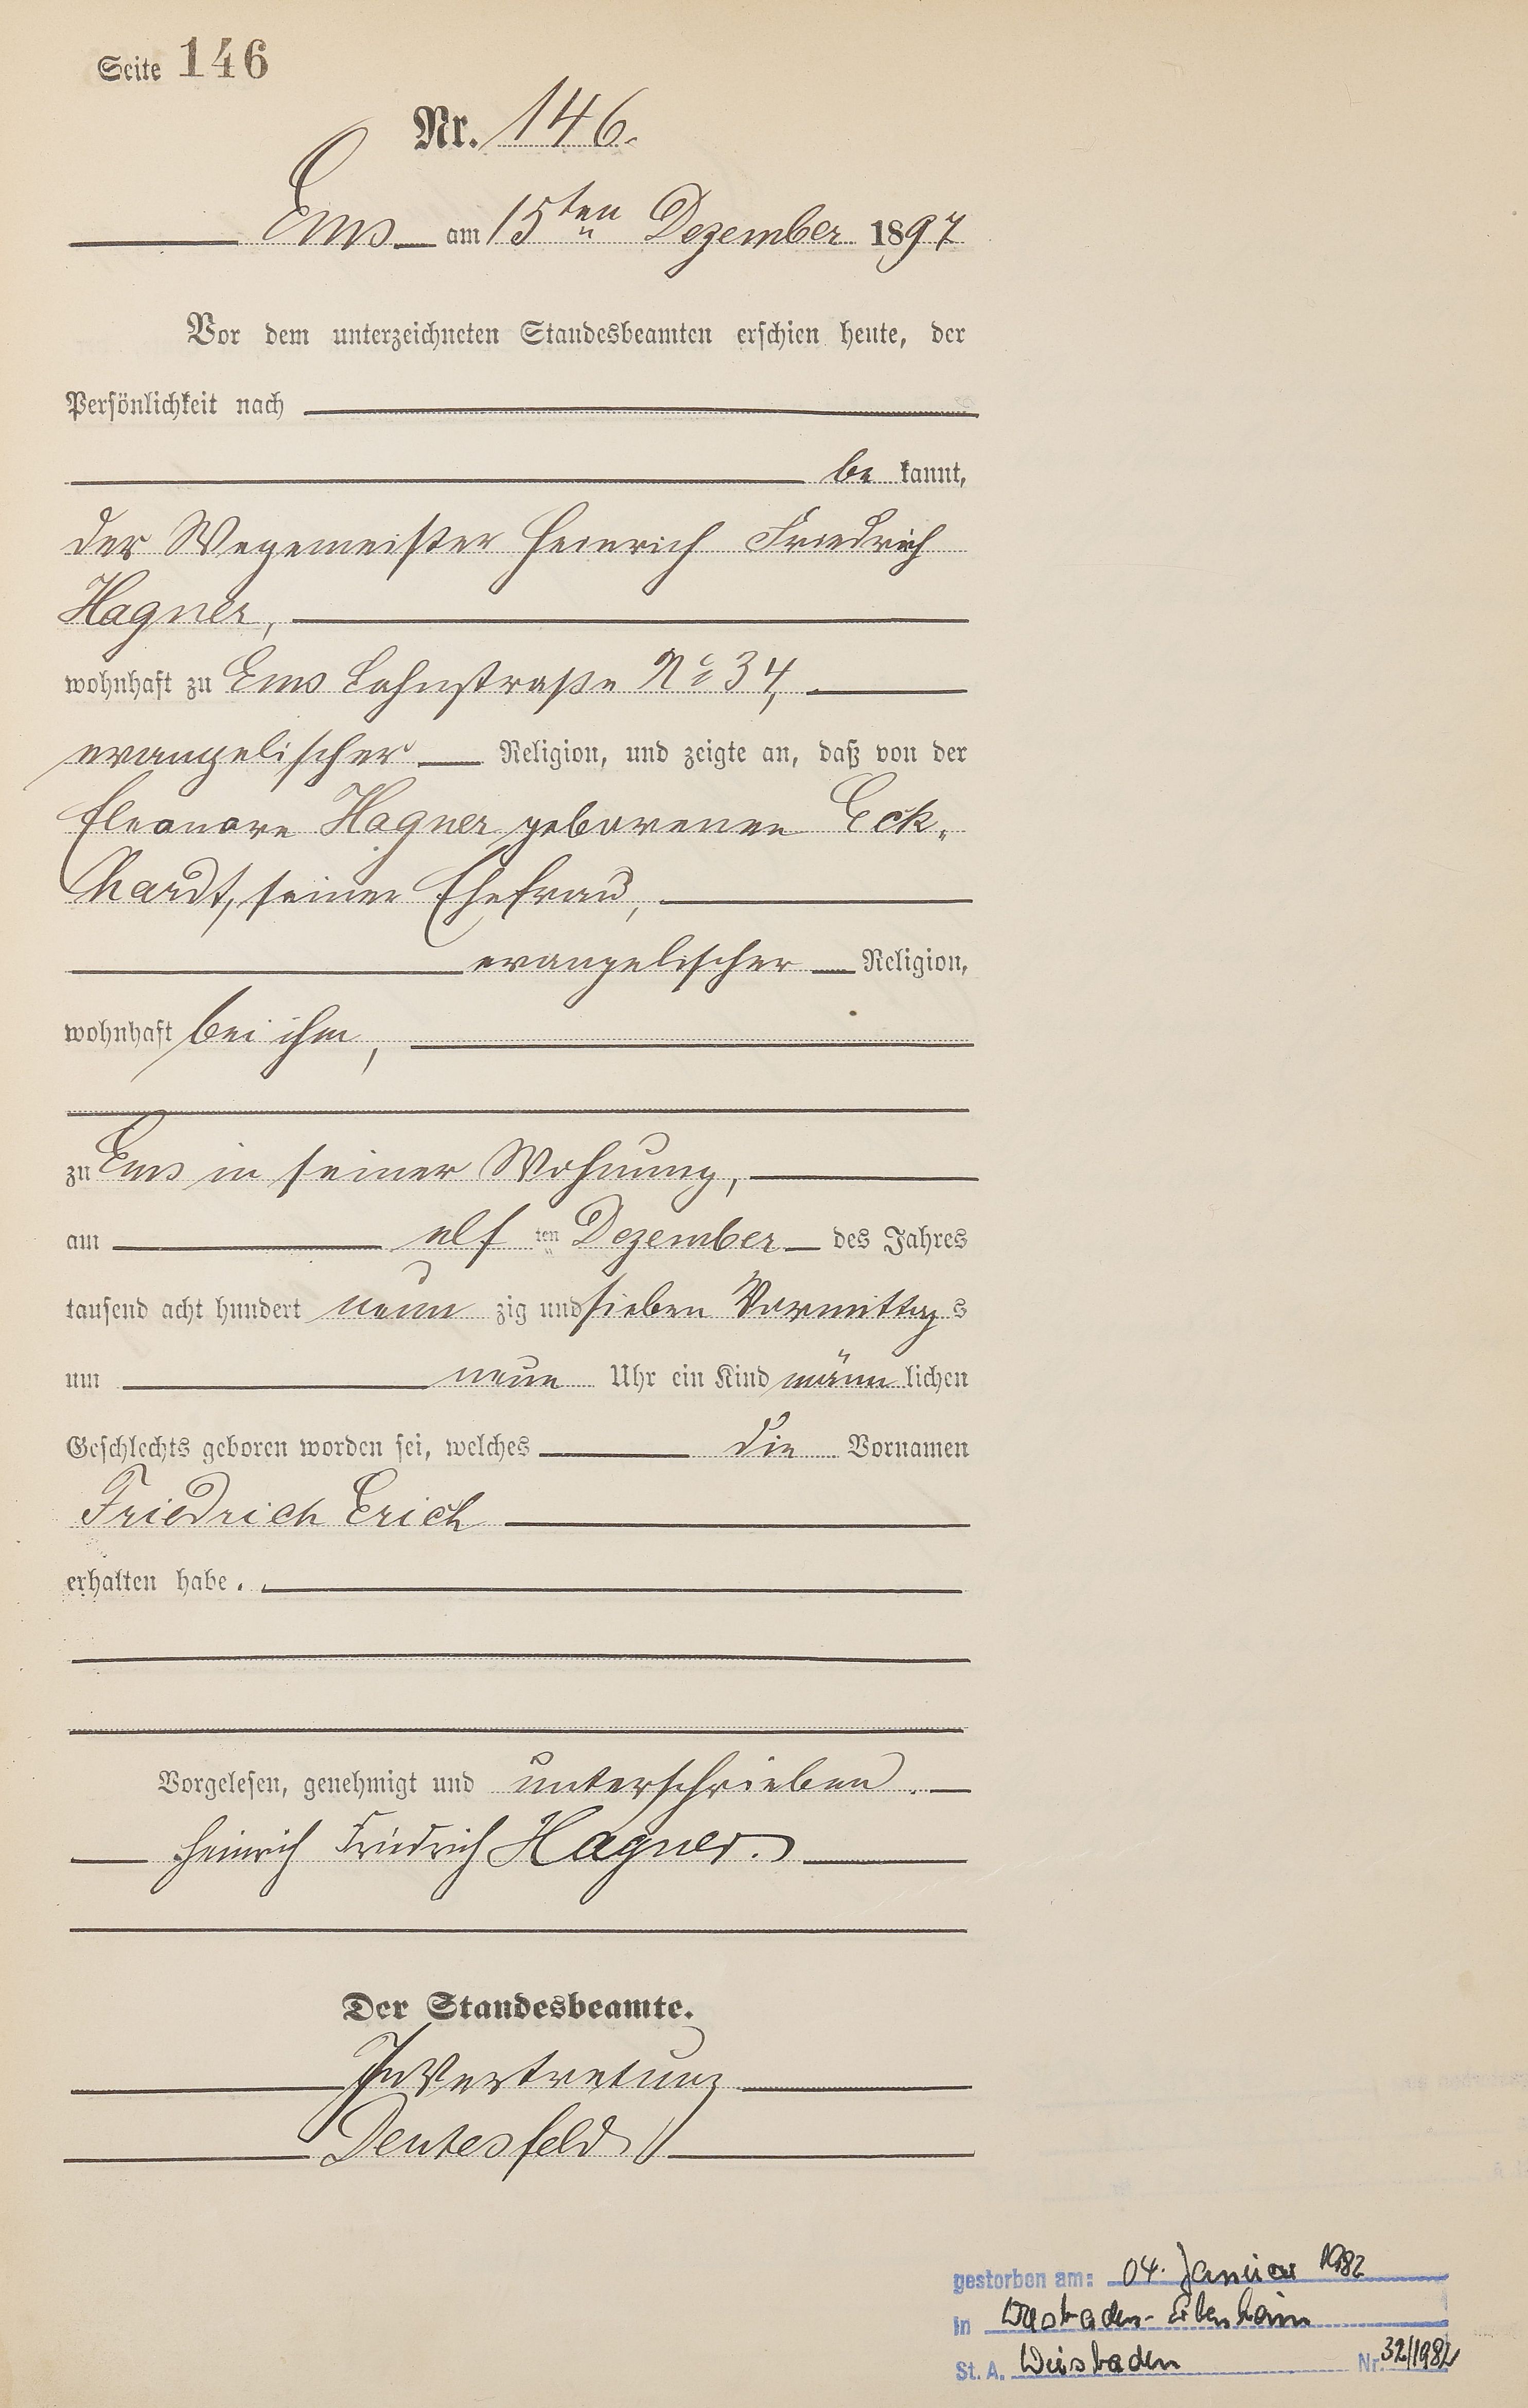 Seite 146
Nr. 146.
Ems am 15ten Dezember 1897
Vor dem unterzeichneten Standesbeamten erschien heute, der
Persönlichkeit nach
be kannt,
der Wegemeister Heinrich Friedrich
Hagner,
wohnhaft zu Ems Lahnstraße No 34,
evangelischer Religion, und zeigte an, daß von der
Eleonore Hagner geborenen Eck-
hardt, seiner Ehefrau,
evangelischer Religion,
wohnhaft bei ihm,
zu Ems in seiner Wohnung,
am elf ten Dezember des Jahres
tausend acht hundert neun zig und sieben Vormittag s
um neun Uhr ein Kind männ lichen
Geschlechts geboren worden sei, welches die Vornamen
Friedrich Erich
erhalten habe.
Vorgelesen, genehmigt und unterschrieben
Heinrich Friedrich Hagner.
Der Standesbeamte.
In Vertretung
Deutesfeld
gestorben am: 04. Januar 1982
in Wiesbaden-Erbenheim
St. A. Wiesbaden Nr. 32/1982